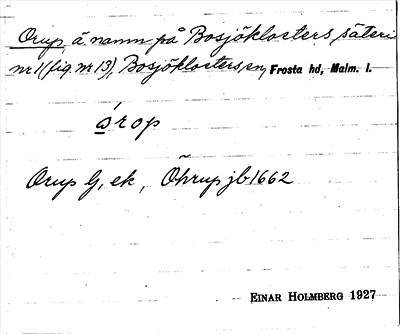 Orup, ä. namn på Bosjöklosters säteri
nr 1 (fig. nr 13), Bosjöklosters sn, Frosta hd, Malm. l.
órop
Orup G, ek, Öhrup jb 1662
EINAR HOLMBERG 1927